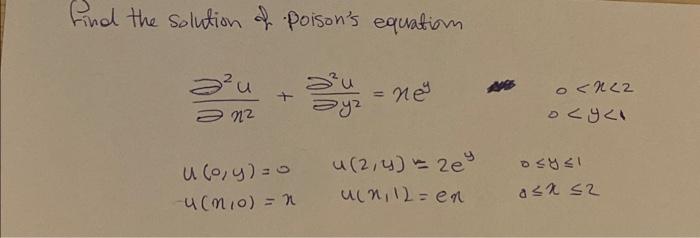 Find the solution of Poison's equation
∂²u/∂x² + ∂²u/∂y² = xe^y 0 < x < 2
0 < y < 1
u(0,y) = 0 u(2,y) = 2e^y 0 ≤ y ≤ 1
u(x,0) = x u(x,1) = ex 0 ≤ x ≤ 2